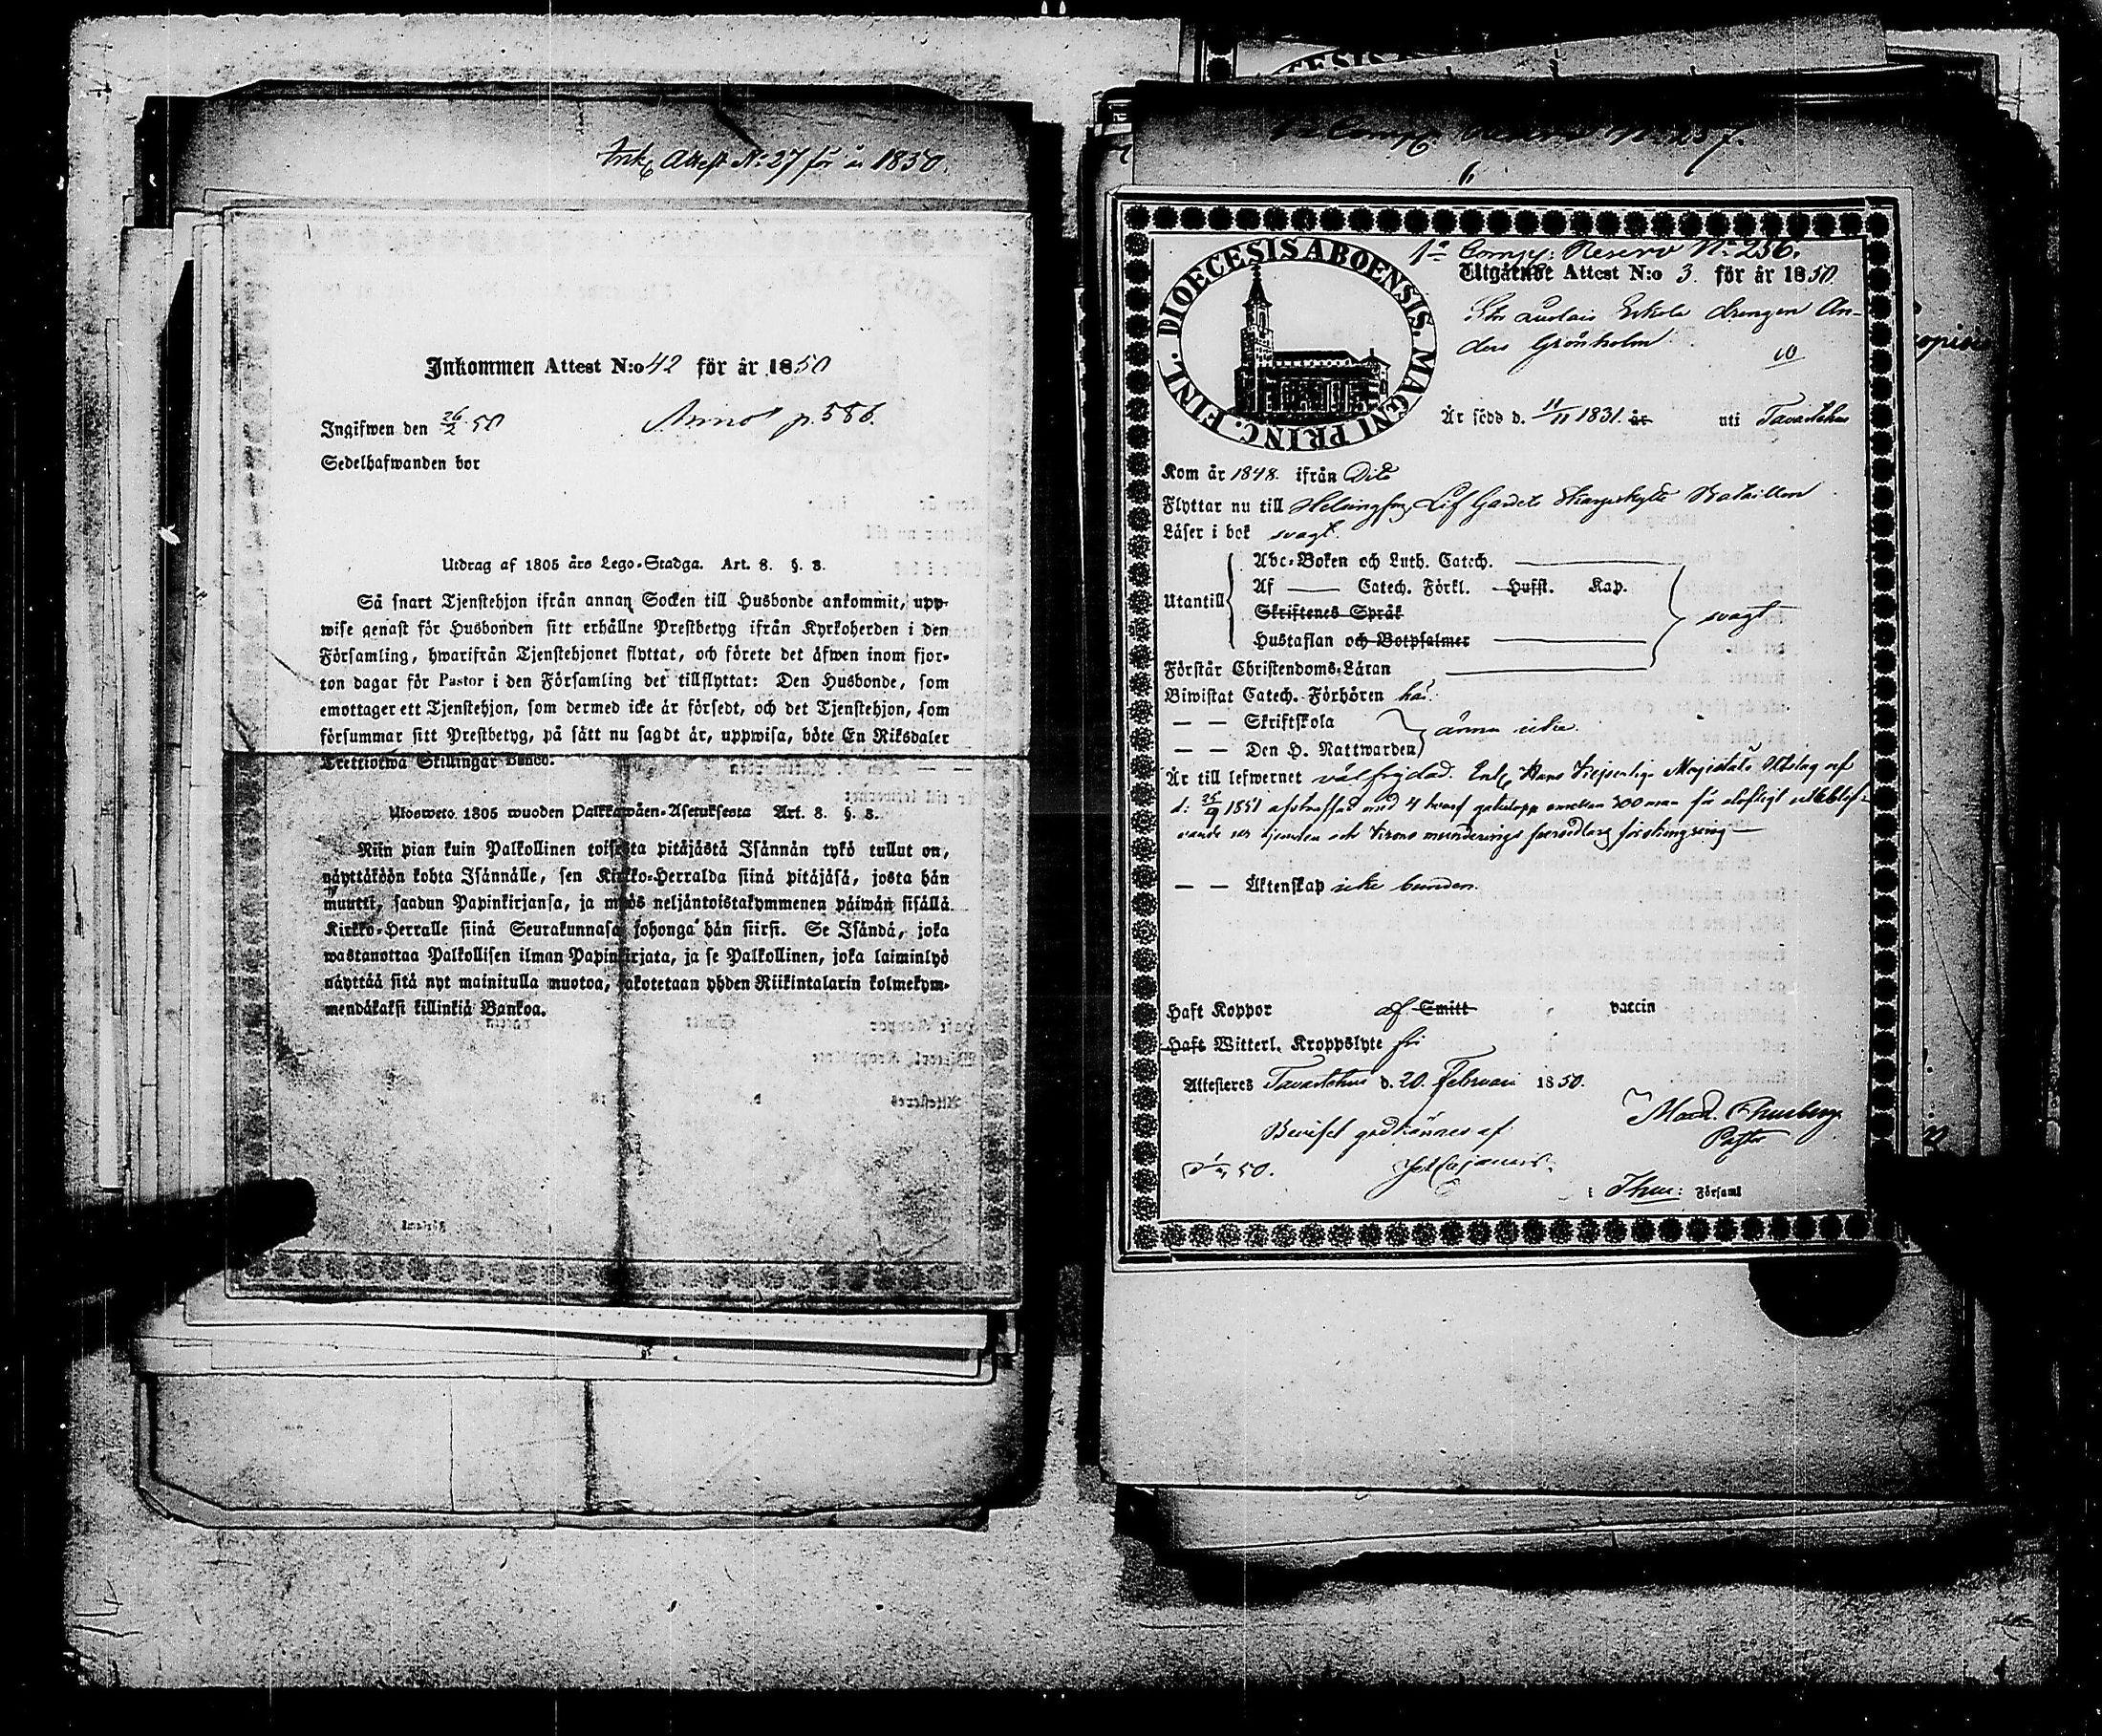 Ink. Attest No: 27 för år 1850.
Inkommen Attest N:o 42 för år 1850
Ingifwen den 26/2 50 p. 586.
Sedelhafwanden bor
Utdrag af 1805 års Lego-Stadga. Art. 8. §. 3.
Så snart Tjenstehjon ifrån annan Socken till Husbonde ankommit, upp-
wise genast för Husbonden sitt erhållne Prestbetyg ifrån Kyrkoherden i den
Församling, hwarifrån Tjenstehjonet flyttat, och förete det äfwen inom fjor-
ton dagar för Pastor i den Församling det tillflyttat: Den Husbonde, som
emottager ett Tjenstehjon, som dermed icke är försedt, och det Tjenstehjon, som
försummar sitt Prestbetyg, på sätt nu sagdt är, uppwisa, böte En Riksdaler
Trettiotwå Skillingar Banco.
Ulosweto 1805 wuoden Palkkawäen-Asetuksesta Art. 8. §. 3.
Niin pian kuin Palkollinen toisesta pitäjästä Isännän tykö tullut on,
näyttäköön kohta Isännälle, sen Kirkko-Herralda siinä pitäjäsä, josta hän
muutti, saadun Papinkirjansa, ja myös neljäntoistakymmenen päiwän sisällä
Kirkko-Herralle siinä Seurakunnasa johonga hän siirsi. Se Isändä, joka
wastanottaa Palkollisen ilman Papinkirjata, ja se Palkollinen, joka laiminlyö
näyttää sitä nyt mainitulla muotoa, sakotetaan yhden Riikintalarin kolmekym-
mendäkaksi killinkiä Bankoa.
Comp. Reserv No 257.
6
1a Comp: Reserv No 256.
Utgående Attest N:o 3. för år 1850
drengen An-
ders Grönholm
10
DIOECESIS ABOENSIS. MAGNI PRINC. FINL.
Är född d. 11/11 1831. år uti Tavastehus
Kom år 1848. ifrån Dito
Flyttar nu till Helsingfors, Lif Gardets Skarpskytte Bataillon
Läser i bok svagt.
Abc-Boken och Luth. Catech.
Af Catech. Förkl. Hufst. Kap.
Utantill
Skriftenes Språk
svagt
Hustaflan och Botpsalmer
Förstår Christendoms-Läran
Biwistat Catech. Förhören har.
— — Skriftskola
ännu icke.
— — Den H. Nattwarden
Är till lefwernet välfrejdad. Enl. Hans Kejserlige Majestäts Utslag af
d. 25/9 1851 afstraffad med 4 hvarf gatulopp emellan 300 man för olofligt utteblif-
vande ur tjensten och Krono munderings
— — Äktenskap icke bunden.
Haft Koppor af Smitt vaccin
Haft Witterl. Kroppslyte fri
Attesteres Tavastehus d. 20. Februari 1850.
Beviset godkännes af
50.
Pastor
i Thus: Församl